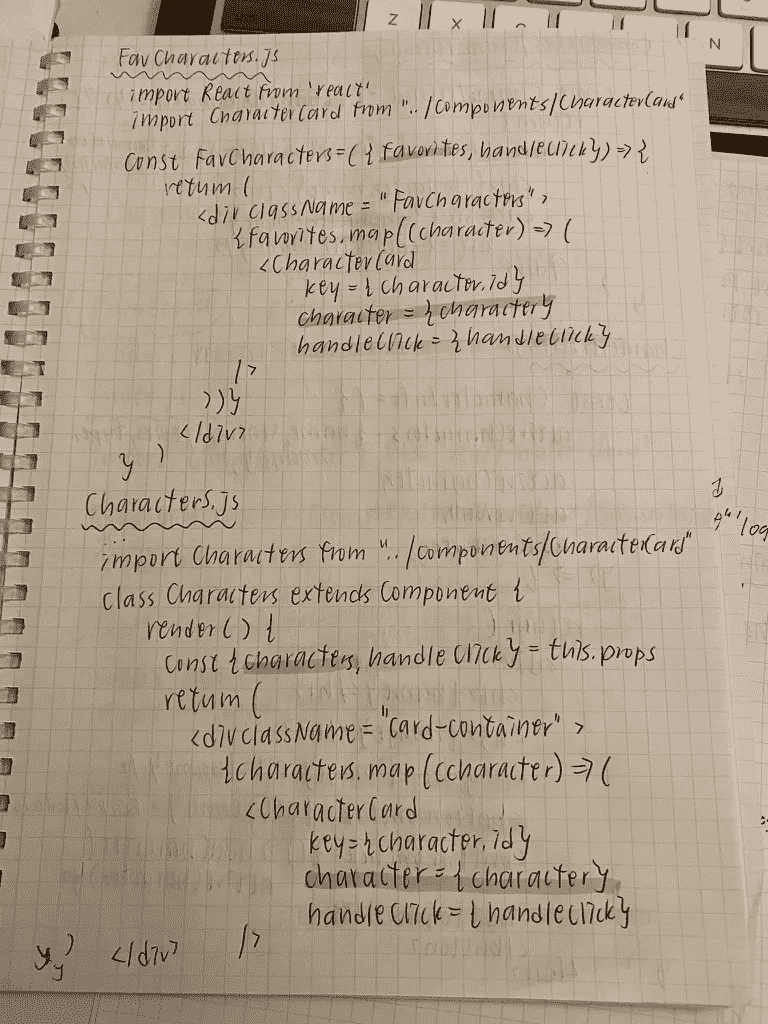 Z X N
FavCharacters.js
import React from 'react'
import CharacterCard from "../Components/CharacterCard"
const FavCharacters=({ favorites, handleClick}) => {
return (
<div className = "FavCharacters" >
{favorites.map((character) => (
<CharacterCard
key = {character.id}
character = {character}
handleClick = {handleClick}
/>
))}
</div>
)
}
Characters.js
...
import Characters from "../components/CharacterCard"
class Characters extends Component {
render() {
const {characters, handleClick} = this.props
return (
<div className = "card-container" >
{characters.map((character) => (
<CharacterCard
key={character.id}
character = {character}
handleClick = {handleClick}
}}) </div> />